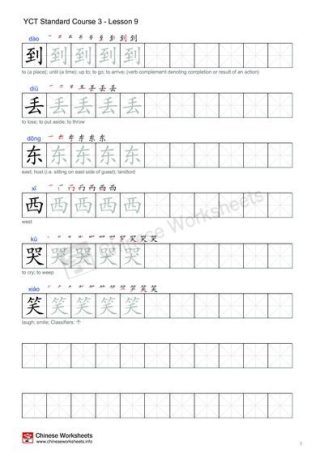 YCT Standard Course 3 - Lesson 9
dào
到 到 到 到 到
to (a place); until (a time); up to; to go; to arrive; (verb complement denoting completion or result of an action)
diū
丢 丢 丢 丢 丢
to lose; to put aside; to throw
dōng
东 东 东 东 东
east; host (i.e. sitting on east side of guest); landlord
xī
西 西 西 西 西
west
kū
哭 哭 哭 哭 哭
to cry; to weep
xiào
笑 笑 笑 笑 笑
laugh; smile; Classifiers: 个
Chinese Worksheets
Chinese Worksheets
www.chineseworksheets.info